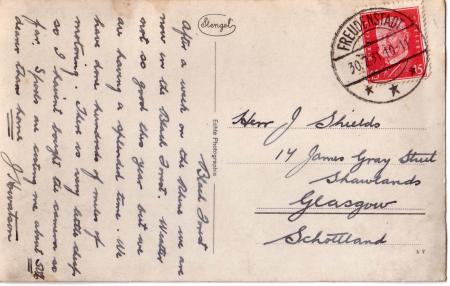 Black Forest
After a week on the Rhine we are
now in the Black Forest. Weather
not so good this year but we
are having a splendid time. We
have done hundreds of miles of
motoring. There is very little
so I haven't bought the camera so
far. Spools are costing me about
than home
Stengel
Echte Photographie
FREUDENSTADT
30.7.31.10-11
15
Herr J Shields
14 James Gray Street
Shawlands
Glasgow
Schottland